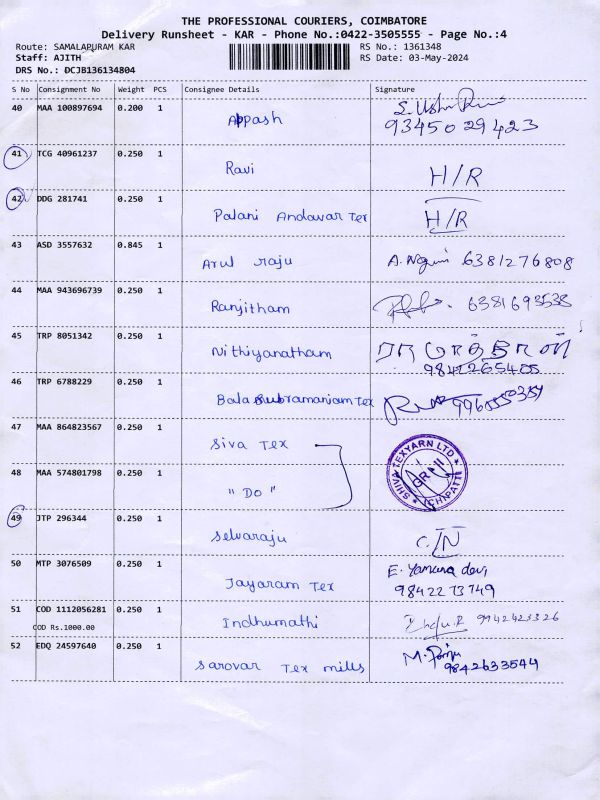 THE PROFESSIONAL COURIERS, COIMBATORE
Delivery Runsheet - KAR - Phone No.:0422-3505555 - Page No.:4
Route: SAMALAPURAM KAR
RS No.: 1361348
Staff: AJITH
RS Date: 03-May-2024
DRS No.: DCJB136134804
S No Consignment No Weight PCS Consignee Details Signature
40 MAA 100897694 0.200 1 Appash
93450 29423
41 TCG 40961237 0.250 1 Ravi H/R
42 DDG 281741 0.250 1 Palani Andavar Tex H/R
43 ASD 3557632 0.845 1 Arul raju 6381276808
44 MAA 943696739 0.250 1 Ranjitham 6381693538
45 TRP 8051342 0.250 1 Nithiyanatham
9842265455
46 TRP 6788229 0.250 1 Bala Subramaniam Tex
47 MAA 864823567 0.250 1 Siva Tex
48 MAA 574801798 0.250 1 "Do"
SHIVA TEXYARN LTD
49 JTP 296344 0.250 1 Selvaraju C/N
50 MTP 3076509 0.250 1 Jayaram Tex E. Yamuna devi
98422 73749
51 COD 1112056281 0.250 1 Indhumathi 9942423326
COD Rs.1000.00
52 EDQ 24597640 0.250 1 Sarovar Tex mills
9842633544